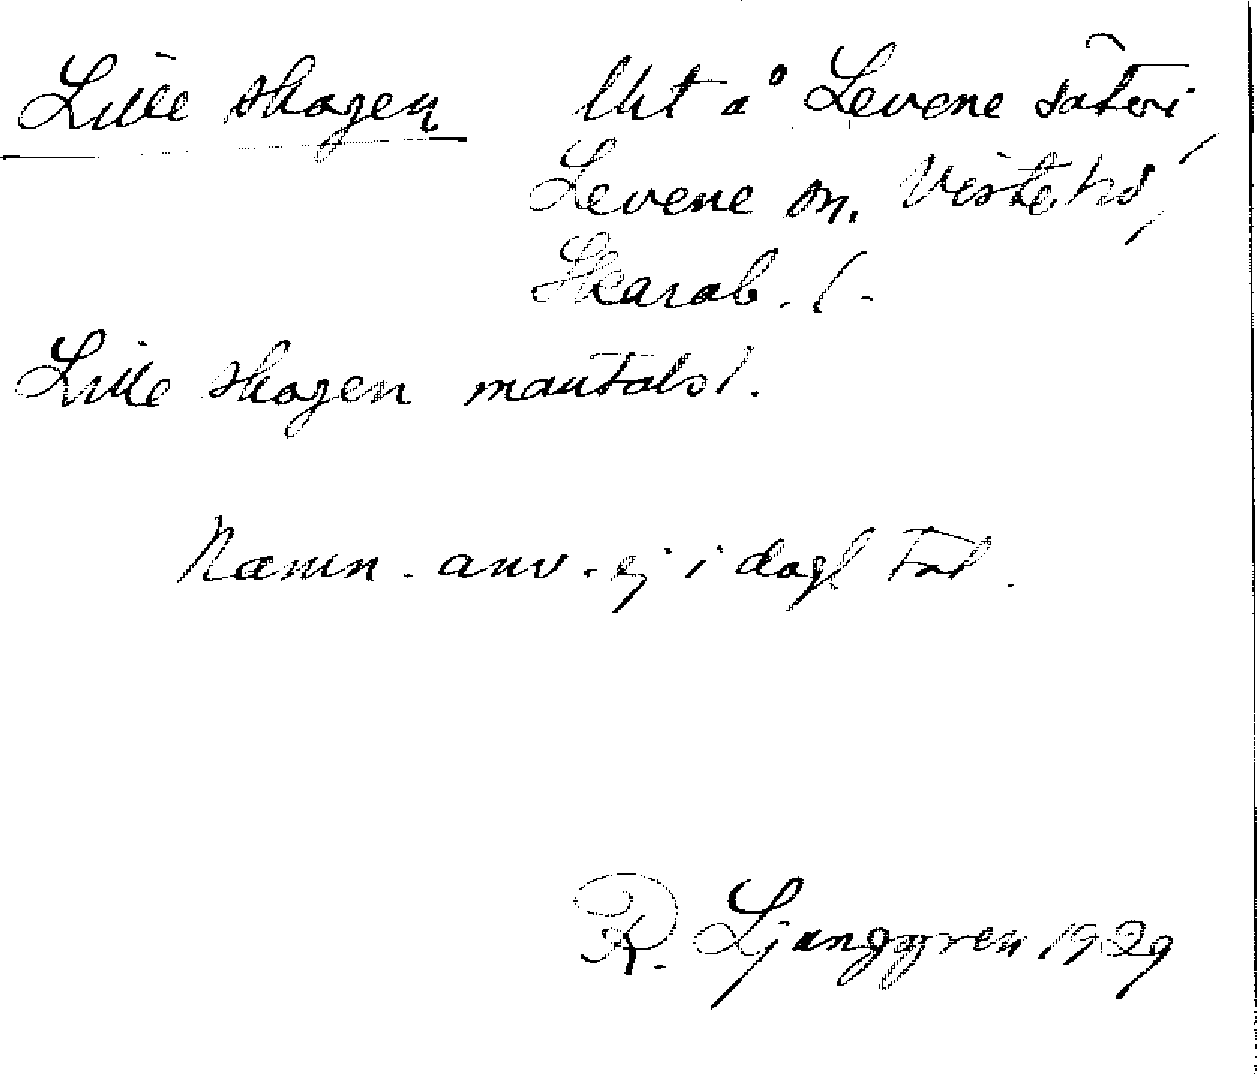 Lille skogen Utt å Levene säteri,
Levene sn, Viste hd,
Skarab. l.
Lille skogen mantalsl.
Namn. anv. ej i dagl tal.
R. Ljunggren 1929